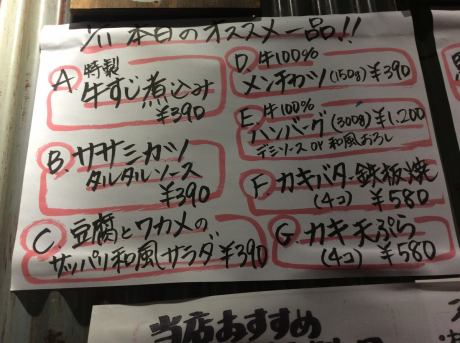 1/11 本日のオススメ一品!!
A. 特製
牛すじ煮込み
¥390
B. ササミカツ
タルタルソース
¥390
C. 豆腐とワカメの
ザッパリ和風サラダ ¥390
D. 牛100%
メンチカツ(150g) ¥390
E. 牛100%
ハンバーグ(300g) ¥1,200
デミソース or 和風おろし
F. カキバター鉄板焼
(4コ) ¥580
G. カキ天ぷら
(4コ) ¥580
当店おすすめ